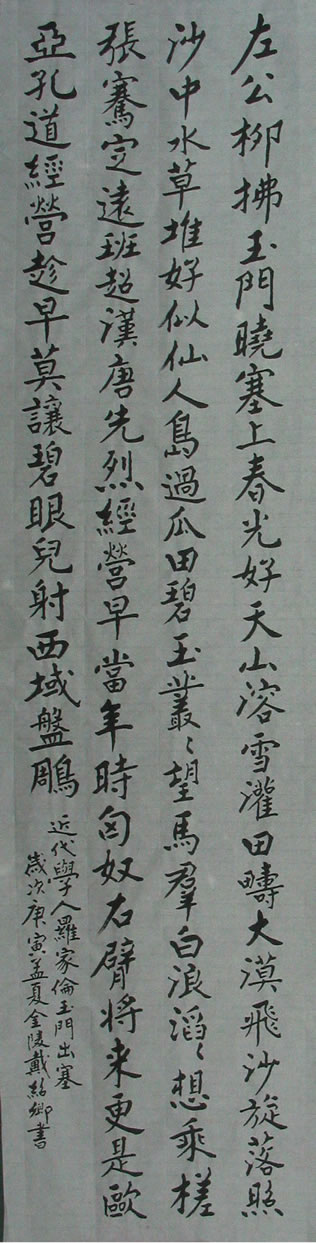 左公柳拂玉門曉塞上春光好天山溶雪灌田疇大漠飛沙旋落照
沙中水草堆好似仙人島過瓜田碧玉叢〻望馬羣白浪滔〻想乘槎
張騫定遠班超漢唐先烈經營早當年時匈奴右臂将来更是歐
亞孔道經營趁早莫讓碧眼兒射西域盤雕
近代學人羅家倫玉門出塞
歲次庚寅孟夏金陵戴紹卿書